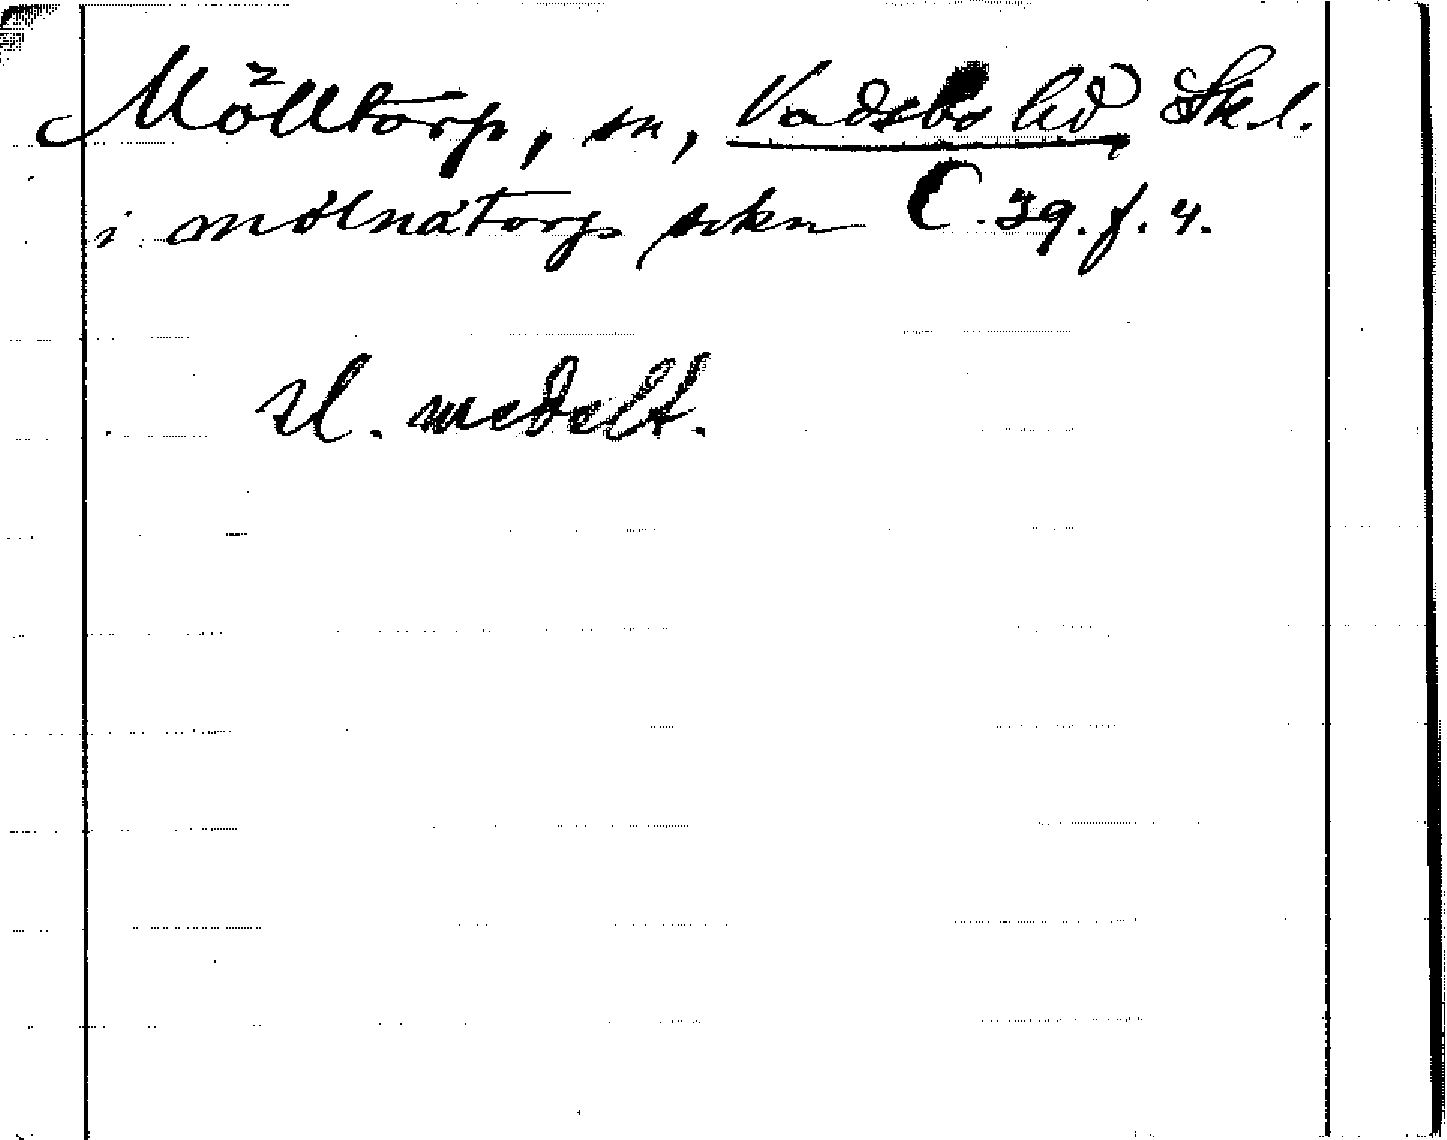 Mölltorp, sn, Vadsbo hd Sk.l.
i mölnatorp sokn C. 39. f. 4.
U. medelt.